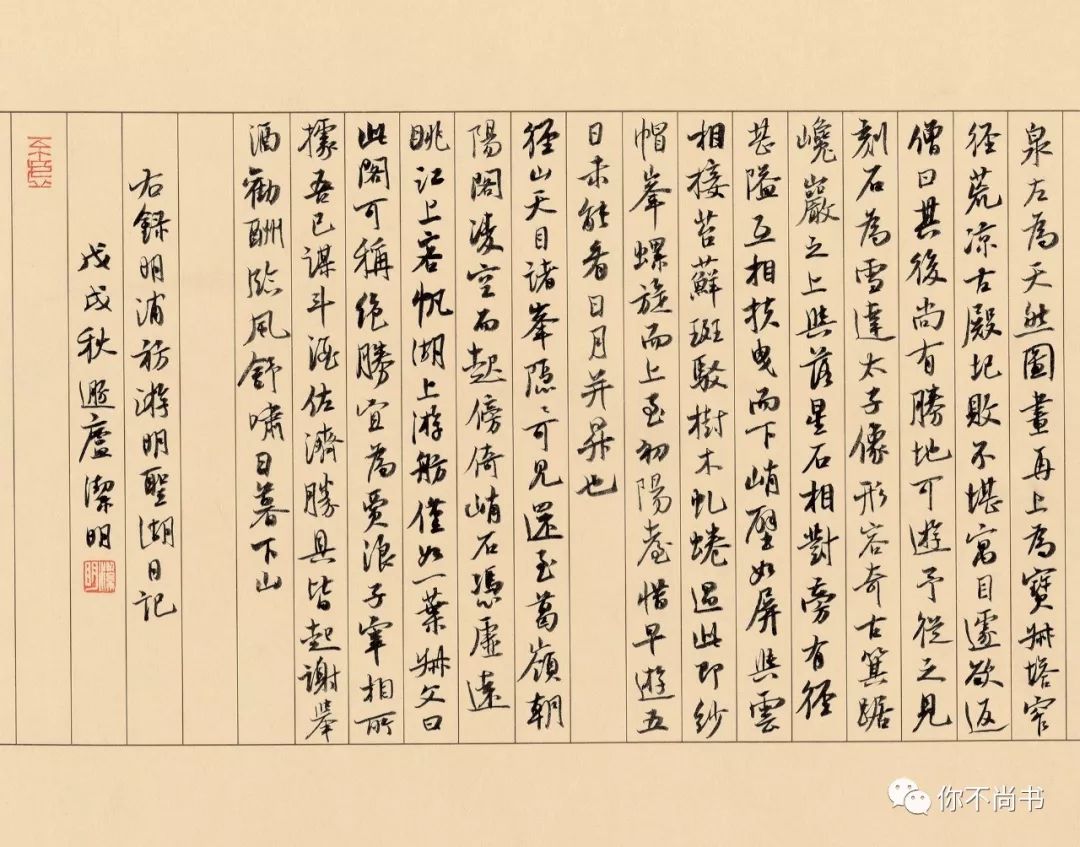 泉左為天然圖畫再上為寶叔塔窄
徑荒凉古殿圮敗不堪寓目遽欲返
僧曰其後尚有勝地可遊予從之見
刻石為雪達太子像形容奇古箕踞
巉巖之上與落星石相對旁有徑
甚隘互相扶曳而下峭壁如屏與雲
相接苔蘚斑駁樹木虬蜷過此即紗
帽峯螺旋而上至初陽臺惜早遊五
日未能看日月并昇也
徑山天目諸峯隱〻可見還至葛嶺朝
陽閣凌空而起傍倚峭石憑虛遠
眺江上客帆湖上游舫僅如一葉叔父曰
此閣可稱絶勝宜為賈浪子宰相所
據吾已謀斗酒佐濟勝具皆起謝舉
酒勸酬臨風舒嘯日暮下山
右録明浦祊游明聖湖日記
戊戌秋遯廬潔明
潔明
你不尚书